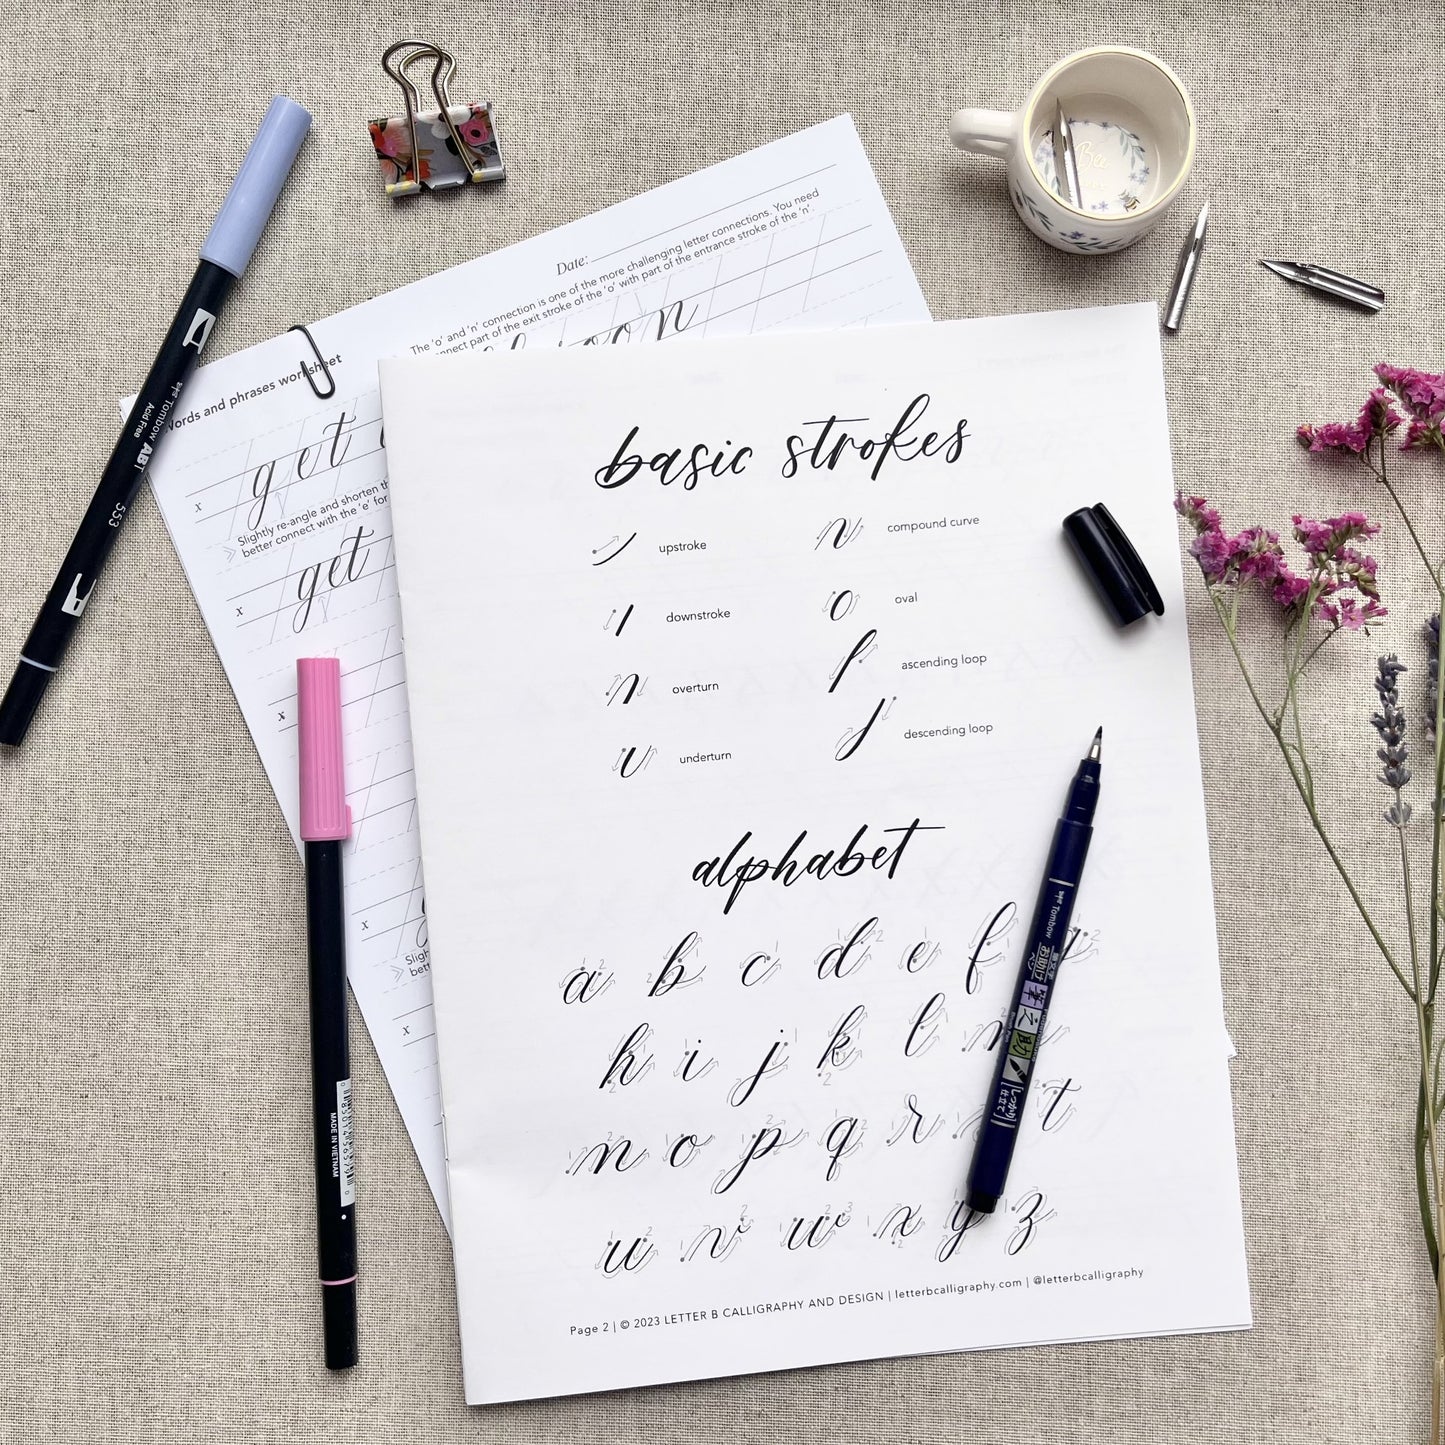 Date:
The 'o' and 'n' connection is one of the more challenging letter connections. You need
part of the exit stroke of the 'o' with part of the entrance stroke of the 'n'.
words and phrases worksheet
x
get
Slightly re-angle and shorten
better connect with the 'e' for
x
get
x
x
x
basic strokes
upstroke
compound curve
downstroke
oval
overturn
ascending loop
underturn
descending loop
alphabet
a b c d e f
h i j k l m
n o p q r t
u v w x y z
Page 2 | © 2023 LETTER B CALLIGRAPHY AND DESIGN | letterbcalligraphy.com | @letterbcalligraphy
Tombow ABT
Acid Free
553
MADE IN VIETNAM
Tombow
Bee